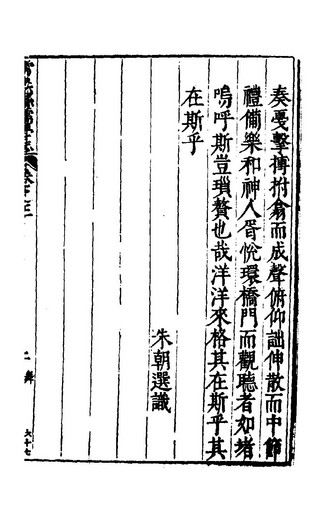 奏戞擊搏拊翕而成聲俯仰詘伸散而中節
禮備樂和神人胥悅環橋門而觀聽者如堵
嗚呼斯豈瑣贅也哉洋洋來格其在斯乎其
在斯乎
朱朝選識
六十七